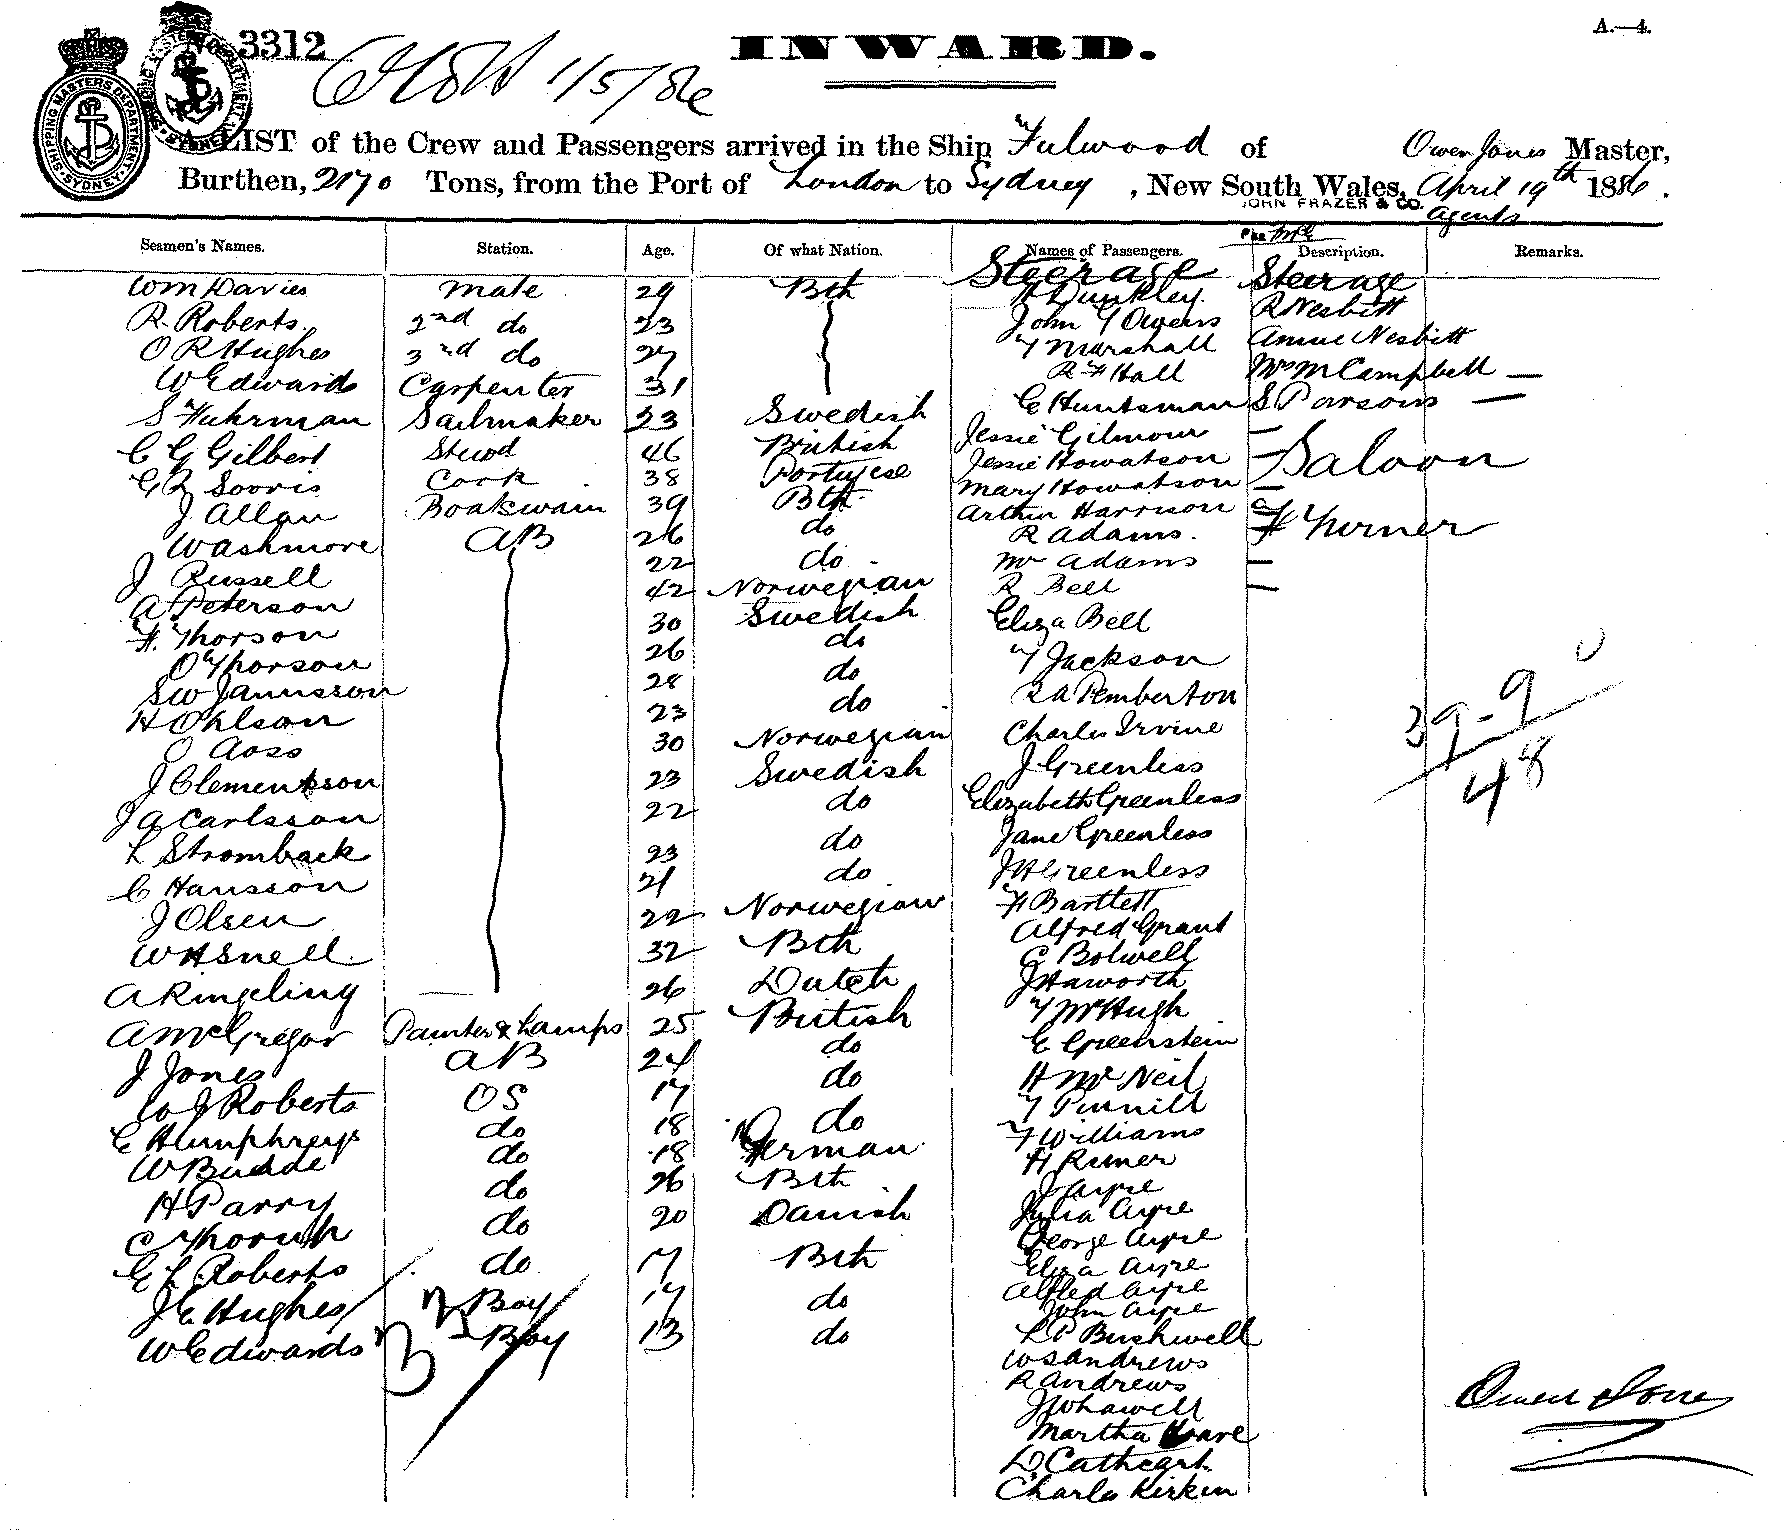 3312
INWARD.
A.—4.
1/5/86
A LIST of the Crew and Passengers arrived in the Ship "Fulwood of Owen Jones Master,
Burthen, 2170 Tons, from the Port of London to Sydney, New South Wales, April 19th 1886.
JOHN FRAZER & CO.
agents
SHIPPING MASTERS DEPARTMENT SYDNEY
Seamen's Names. Station. Age. Of what Nation. Names of Passengers. Description. Remarks.
Steerage Steerage
Wm Davies mate 29 Bth H Dunkley R Nesbitt
R. Roberts 2nd do 23 John T Owens Annie Nesbitt
O R Hughes 3rd do 27 T Marshall Mrs M Campbell —
W Edwards Carpenter 31 R H Hall S Parsons —
S Fuhrman Sailmaker 23 Swedish C Huntsman
C G Gilbert Stewd 46 British Jessie Gilmour — Saloon
G Z Sooris Cook 38 Portugese Jessie Howatson —
J Allan Boatswain 39 Bth Mary Howatson —
W Ashmore AB 26 do Arthur Harrison F Turner
J Russell 22 do R Adams.
A Peterson 42 Norwegian Mr Adams —
F. Thorson 30 Swedish R Bell —
O Thorson 26 do Eliza Bell
S W Jannsson 28 do T Jackson
H Ohlson 23 do R A Pemberton
O Aoss 30 Norwegian Charles Irvine
J Clementsson 23 Swedish J Greenless
J A Carlsson 22 do Elizabeth Greenless
L Stromback 23 do Jane Greenless
C Hansson 21 do J H Greenless
J Olsen 22 Norwegian F Bartlett
W H Snell 32 Bth Alfred Grant
A Ringeling 26 Dutch G Bolwell
A McGregor Painter & Lamps 25 British J Haworth
J Jones AB 24 do T McHugh
W J Roberts OS 17 do E Greenstein
E Humphreys do 18 do H McNeil
W Budde do 18 German T Pinnill
H Parry do 26 Bth F Williams
C Thorup do 20 Danish H Rimer
E L Roberts do 17 Bth J Ayre
J E Hughes Boy 14 do Julia Ayre
W Edwards Boy 13 do George Ayre
Eliza Ayre
Alfred Ayre
John Ayre
L P Bushwell
W S Andrews
R Andrews
J Whawell
Martha Hoare
D Cathcart
Charles Kirkin
39-9
48
Owen Jones